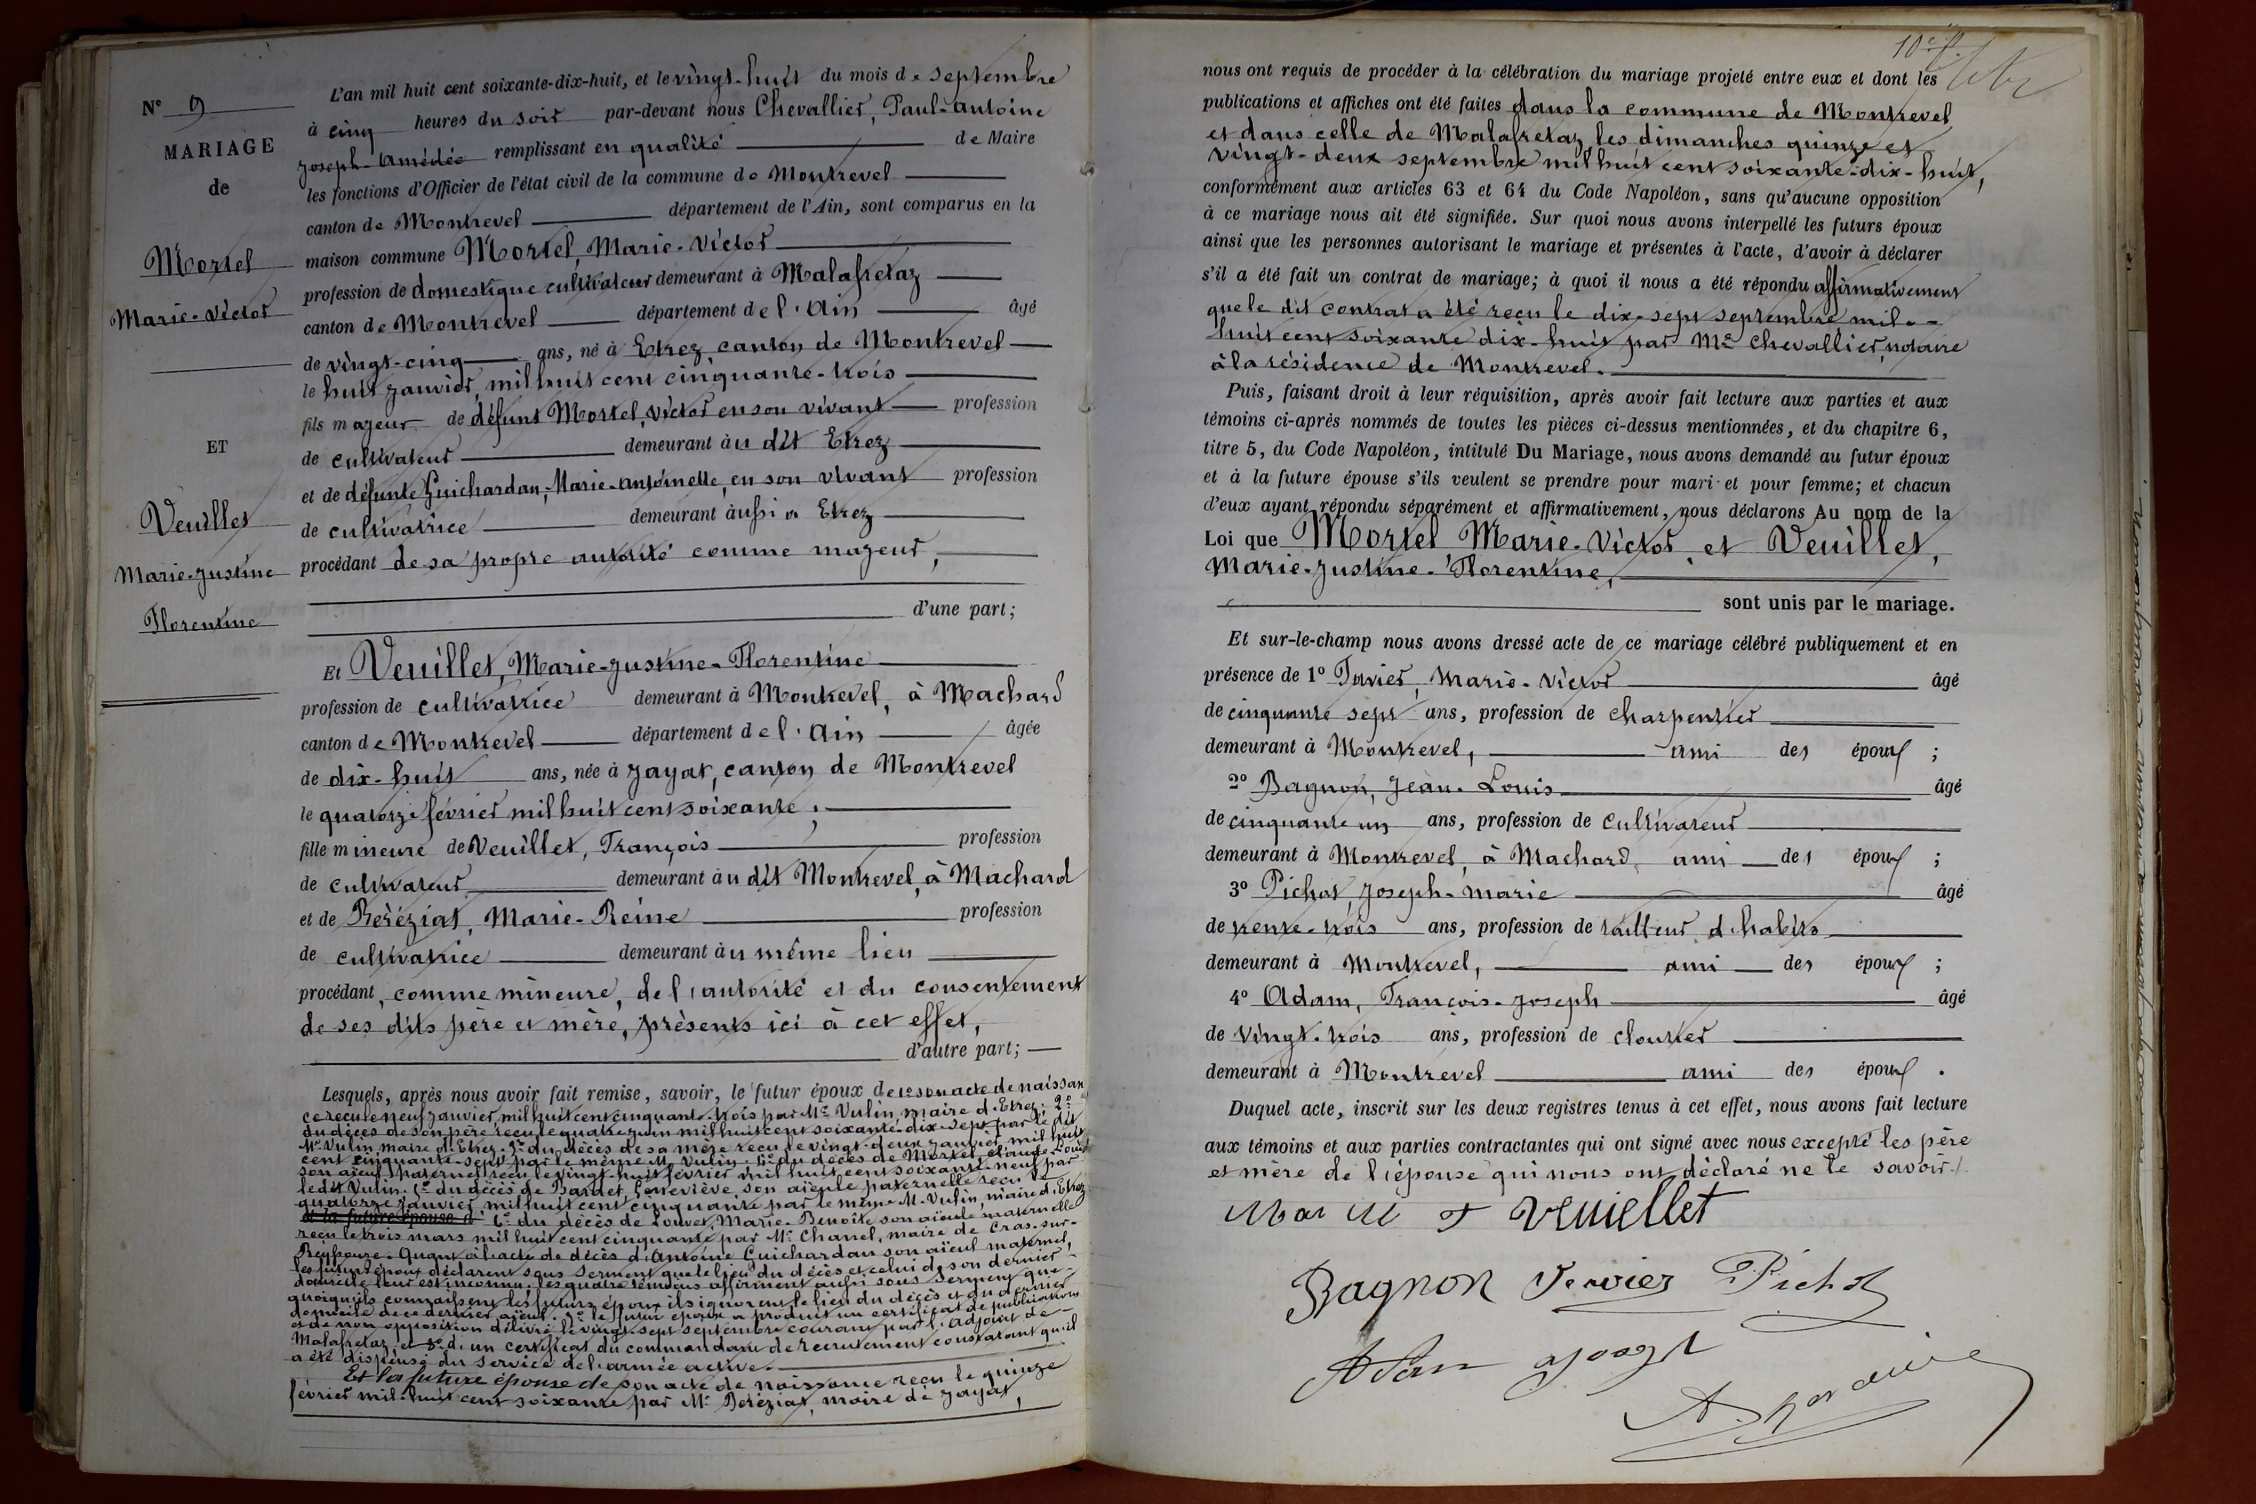 N° 9
MARIAGE
de
Mortel
Marie-Victor
ET
Veuillet
Marie-Justine
Florentine
L'an mil huit cent soixante-dix-huit, et le vingt-huit du mois de septembre
à cinq heures du soir par-devant nous Chevallier, Paul-Antoine
Joseph-Amédée remplissant en qualité de Maire
les fonctions d'Officier de l'état civil de la commune de Montrevel
canton de Montrevel département de l'Ain, sont comparus en la
maison commune Mortel, Marie-Victor
profession de domestique cultivateur demeurant à Malafretaz
canton de Montrevel département de l'Ain âgé
de vingt-cinq ans, né à Etrez, canton de Montrevel
le huit janvier, mil huit cent cinquante-trois
fils majeur de défunt Mortel, Victor en son vivant profession
de cultivateur demeurant au dit Etrez
et de défunte Guichardan, Marie-Antoinette, en son vivant profession
de cultivatrice demeurant aussi à Etrez
procédant de sa propre autorité comme majeur,
d'une part;
Et Veuillet, Marie-Justine-Florentine
profession de cultivatrice demeurant à Montrevel, à Machard
canton de Montrevel département de l'Ain âgée
de dix-huit ans, née à Jayat, canton de Montrevel
le quatorze février mil huit cent soixante,
fille mineure de Veuillet, François profession
de cultivateur demeurant au dit Montrevel, à Machard
et de Beréziat, Marie-Reine profession
de cultivatrice demeurant au même lieu
procédant, comme mineure, de l'autorité et du consentement
de ses dits père et mère, présents ici à cet effet,
d'autre part;
Lesquels, après nous avoir fait remise, savoir, le futur époux de 1° son acte de naissan
ce reçu le neuf janvier, mil huit cent cinquante-trois par Mr Vulin, maire d'Etrez; 2°
du décès de son père reçu le quatre juin mil huit cent soixante-dix-sept par le dit
Mr Vulin, maire d'Etrez. 3° du décès de sa mère reçu le vingt-deux janvier mil huit
cent cinquante-sept par le même M. Vulin. 4° du décès de Mortel, Claude-Louis
son aïeul paternel reçu le vingt-huit février mil huit cent soixante-neuf par
le dit Vulin. 5° du décès de Bardet, Geneviève, son aïeule paternelle reçu le
quatorze janvier mil huit cent cinquante par le même M. Vulin, maire d'Etrez
et la future épouse d 6° du décès de Louvet, Marie-Benoîte son aïeule maternelle
reçu le trois mars mil huit cent cinquante par Mr Chanel, maire de Cras-sur-
Reyssouze. Quant à l'acte de décès d'Antoine Guichardan son aïeul maternel,
les futurs époux déclarent sous serment que le lieu du décès et celui de son dernier
domicile leur est inconnu; les quatre témoins affirment aussi sous serment que
quoiqu'ils connaissent les futurs époux ils ignorent le lieu du décès et du dernier
domicile de ce dernier aïeul. 7° le futur époux a produit un certificat de publications
et de non opposition délivré le vingt-sept septembre courant par l'adjoint de
Malafretaz et 8° d'un certificat du commandant de recrutement constatant qu'il
a été dispensé du service de l'armée active.
Et la future épouse de son acte de naissance reçu le quinze
février mil-huit cent soixante par Mr Beréziat, maire de Jayat,
nous ont requis de procéder à la célébration du mariage projeté entre eux et dont les
publications et affiches ont été faites dans la commune de Montrevel
et dans celle de Malafretaz, les dimanches quinze et
vingt-deux septembre mil huit cent soixante-dix-huit,
conformément aux articles 63 et 64 du Code Napoléon, sans qu'aucune opposition
à ce mariage nous ait été signifiée. Sur quoi nous avons interpellé les futurs époux
ainsi que les personnes autorisant le mariage et présentes à l'acte, d'avoir à déclarer
s'il a été fait un contrat de mariage; à quoi il nous a été répondu affirmativement
que le dit contrat a été reçu le dix-sept septembre mil
huit cent soixante dix-huit par Me Chevallier, notaire
à la résidence de Montrevel.
Puis, faisant droit à leur réquisition, après avoir fait lecture aux parties et aux
témoins ci-après nommés de toutes les pièces ci-dessus mentionnées, et du chapitre 6,
titre 5, du Code Napoléon, intitulé Du Mariage, nous avons demandé au futur époux
et à la future épouse s'ils veulent se prendre pour mari et pour femme; et chacun
d'eux ayant répondu séparément et affirmativement, nous déclarons Au nom de la
Loi que Mortel Marie-Victor, et Veuillet,
Marie-Justine-Florentine,
sont unis par le mariage.
Et sur-le-champ nous avons dressé acte de ce mariage célébré publiquement et en
présence de 1° Favier, Marie-Victor âgé
de cinquante sept ans, profession de charpentier
demeurant à Montrevel, ami des époux ;
2° Bagnon, Jean-Louis âgé
de cinquante un ans, profession de cultivateur
demeurant à Montrevel, à Machard, ami des époux ;
3° Pichat, Joseph-Marie âgé
de trente-trois ans, profession de tailleur d'habits
demeurant à Montrevel, ami des époux ;
4° Adam, François-Joseph âgé
de vingt-trois ans, profession de cloutier
demeurant à Montrevel ami des époux .
Duquel acte, inscrit sur les deux registres tenus à cet effet, nous avons fait lecture
aux témoins et aux parties contractantes qui ont signé avec nous excepté les père
et mère de l'épouse qui nous ont déclaré ne le savoir.
F Veuiellet
Bagnon